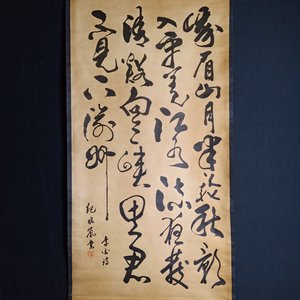 峨眉山月半輪秋影
入平羌江水流夜發
清溪向三峽思君
不見下渝州
李白詩
紀曉嵐書